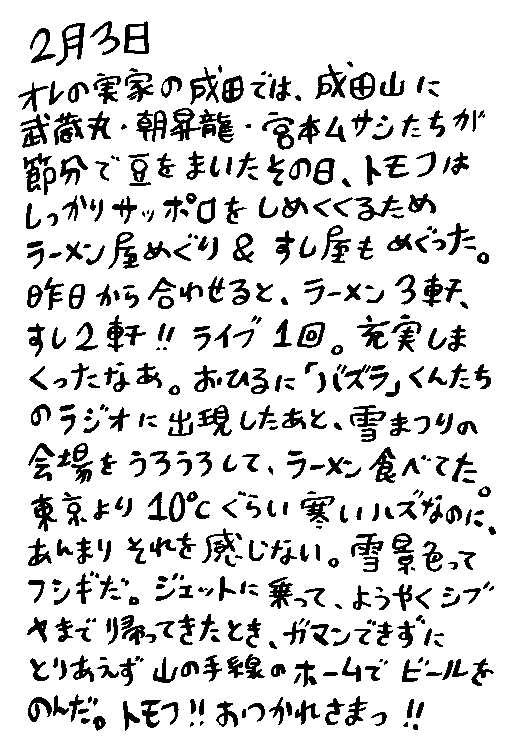 2月3日
オレの実家の成田では、成田山に
武蔵丸・朝昇龍・宮本ムサシたちが
節分で豆をまいたその日、トモフは
しっかりサッポロをしめくくるため
ラーメン屋めぐり & すし屋もめぐった。
昨日から合わせると、ラーメン3軒、
すし2軒!! ライブ1回。充実しま
くったなあ。おひるに「バズラ」くんたち
のラジオに出現したあと、雪まつりの
会場をうろうろして、ラーメン食べてた。
東京より10℃ぐらい寒いハズなのに、
あんまりそれを感じない。雪景色って
フシギだ。ジェットに乗って、ようやくシブ
ヤまで帰ってきたとき、ガマンできずに
とりあえず山の手線のホームでビールを
のんだ。トモフ!! おつかれさまっ!!